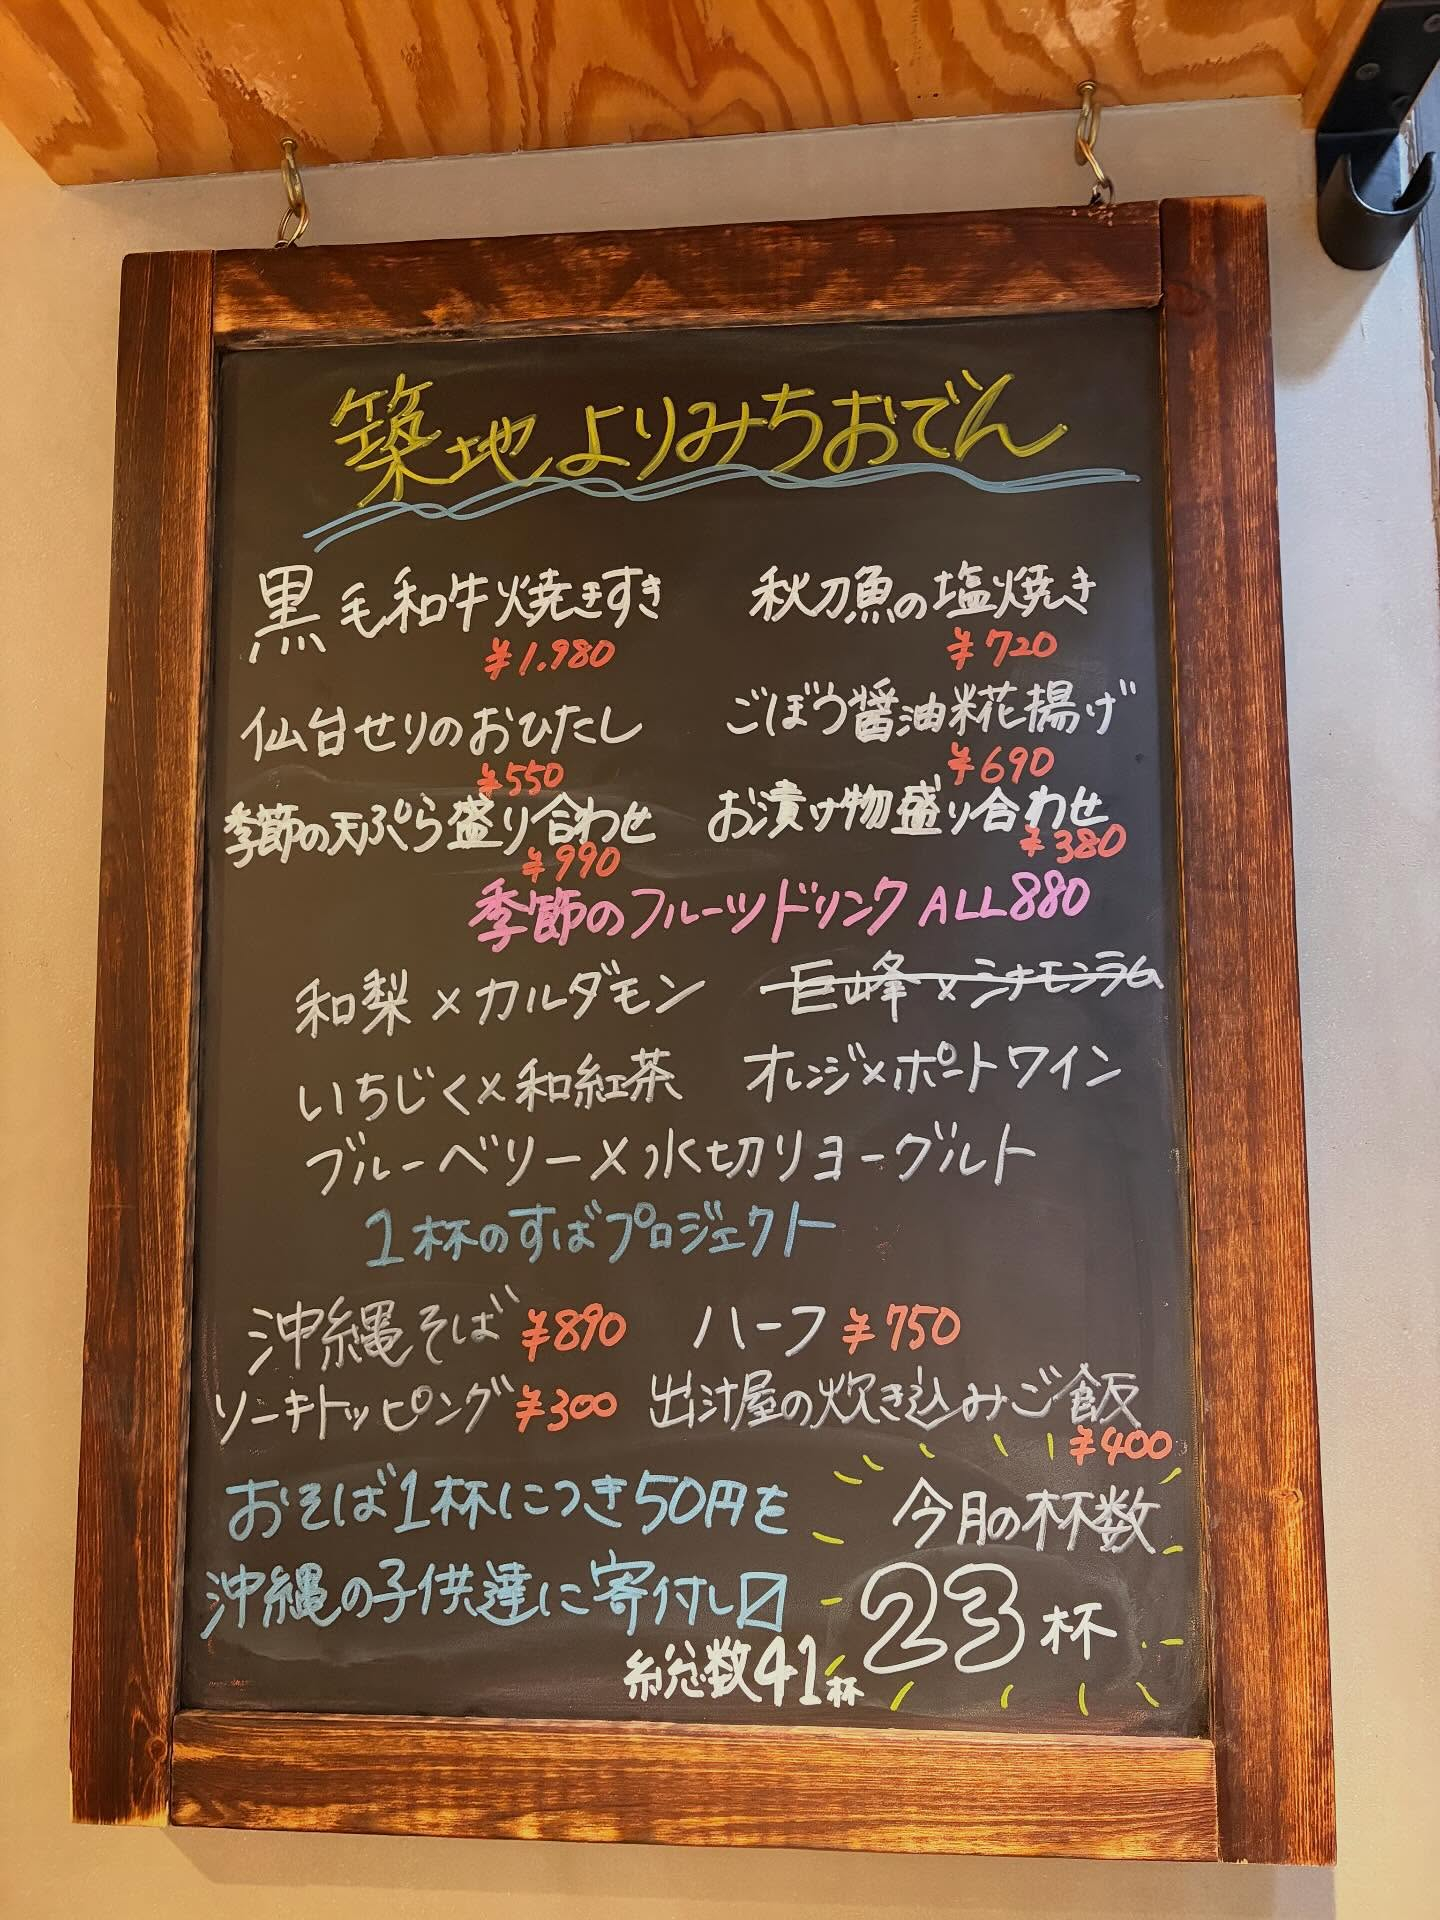 築地よりみちおでん
黒毛和牛焼きすき 秋刀魚の塩焼き
¥1.980 ¥720
仙台せりのおひたし ごぼう醤油糀揚げ
¥550 ¥690
季節の天ぷら盛り合わせ お漬け物盛り合わせ
¥990 ¥380
季節のフルーツドリンク ALL880
和梨×カルダモン 巨峰×シナモンラム
いちじく×和紅茶 オレンジ×ポートワイン
ブルーベリー×水切りヨーグルト
1杯のすばプロジェクト
沖縄そば ¥890 ハーフ ¥750
ソーキトッピング ¥300 出汁屋の炊き込みご飯
¥400
おそば1杯につき50円を
沖縄の子供達に寄付し〼
今月の杯数
23杯
総数41杯